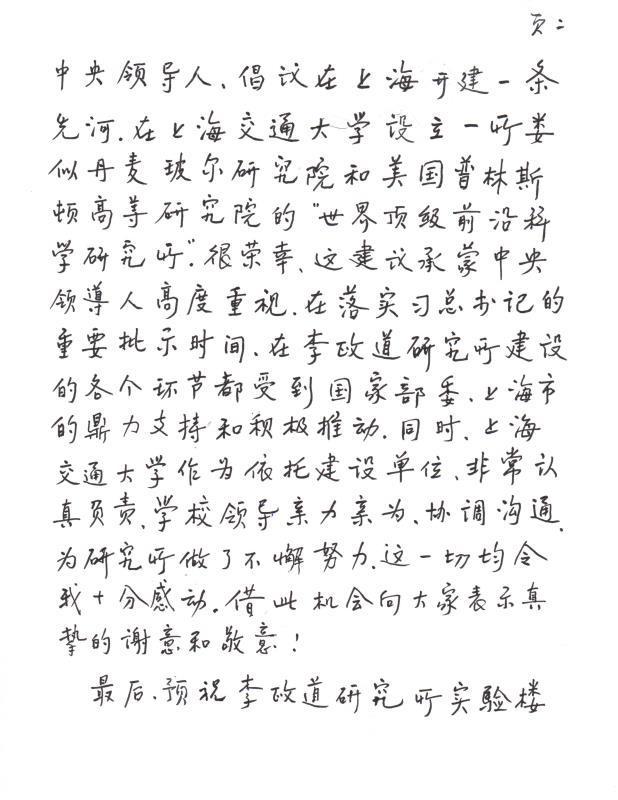 页二
中央领导人、倡议在上海开建一条
先河、在上海交通大学设立一所类
似丹麦玻尔研究院和美国普林斯
顿高等研究院的“世界顶级前沿科
学研究所”。很荣幸、这建议承蒙中央
领导人高度重视、在落实习总书记的
重要批示时间、在李政道研究所建设
的各个环节都受到国家部委、上海市
的鼎力支持和积极推动。同时、上海
交通大学作为依托建设单位、非常认
真负责、学校领导亲力亲为、协调沟通、
为研究所做了不懈努力、这一切均令
我十分感动。借此机会向大家表示真
挚的谢意和敬意！
最后、预祝李政道研究所实验楼